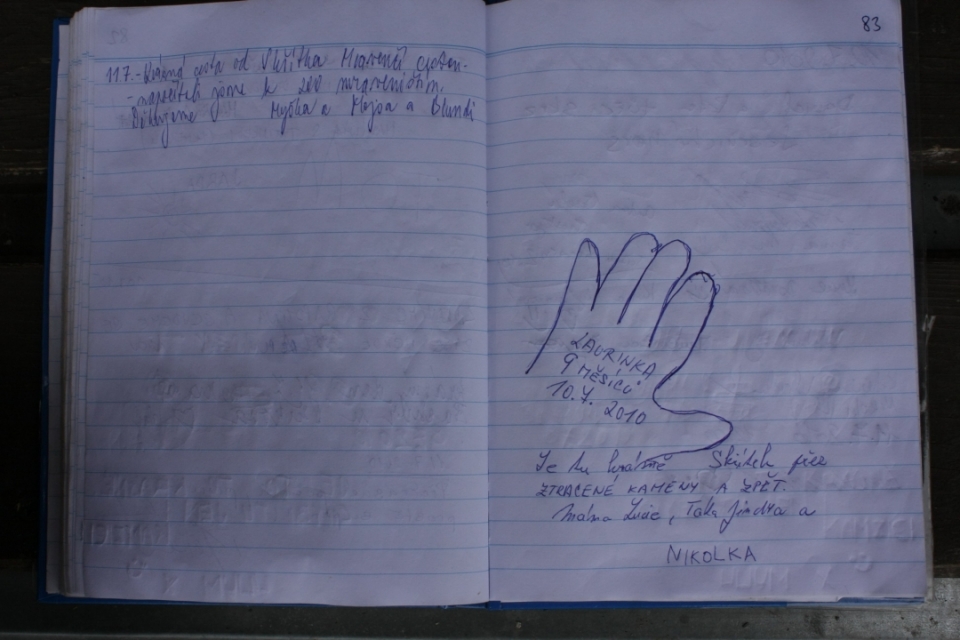 83
11.7. - Krásná cesta od Skřítka Mravenčí cestou -
- napočítali jsme k 200 mraveništím.
Děkujeme Myška a Mojsa a Blundi
LAURINKA
9 MĚSÍCŮ
10.7. 2010
Je tu krásně Skřítek přes
ZTRACENÉ KAMENY A ZPĚT.
Máma Lucie, Táta Jindra a
NIKOLKA